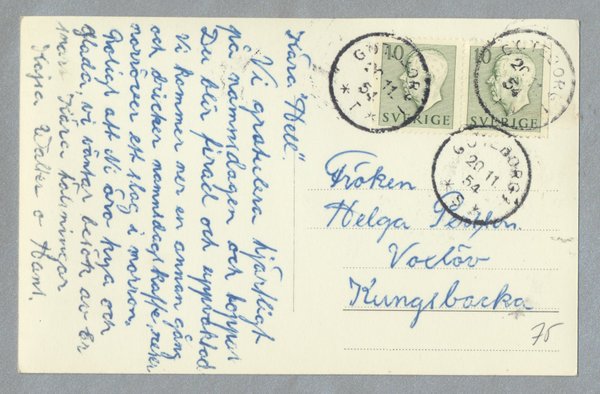 Kära "Hell".
Vi gratulera hjärtligt
på namnsdagen och hoppas
Du blir firad och uppvaktad
Vi kommer ner en annan gång
och dricker namnsdagskaffe, reser
norröver ett slag i morron.
Roligt att Ni äro krya och
glada, vi väntar besök av Er
snart Kära hälsningar
Kajsa Walter o Hans.
10
SVERIGE
10
SVERIGE
GÖTEBORG
20 11
54
* 1 *
GÖTEBORG
20 11
54
GÖTEBORG 1
20 11
54
Fröken
Helga
Voxlöv
Kungsbacka
75